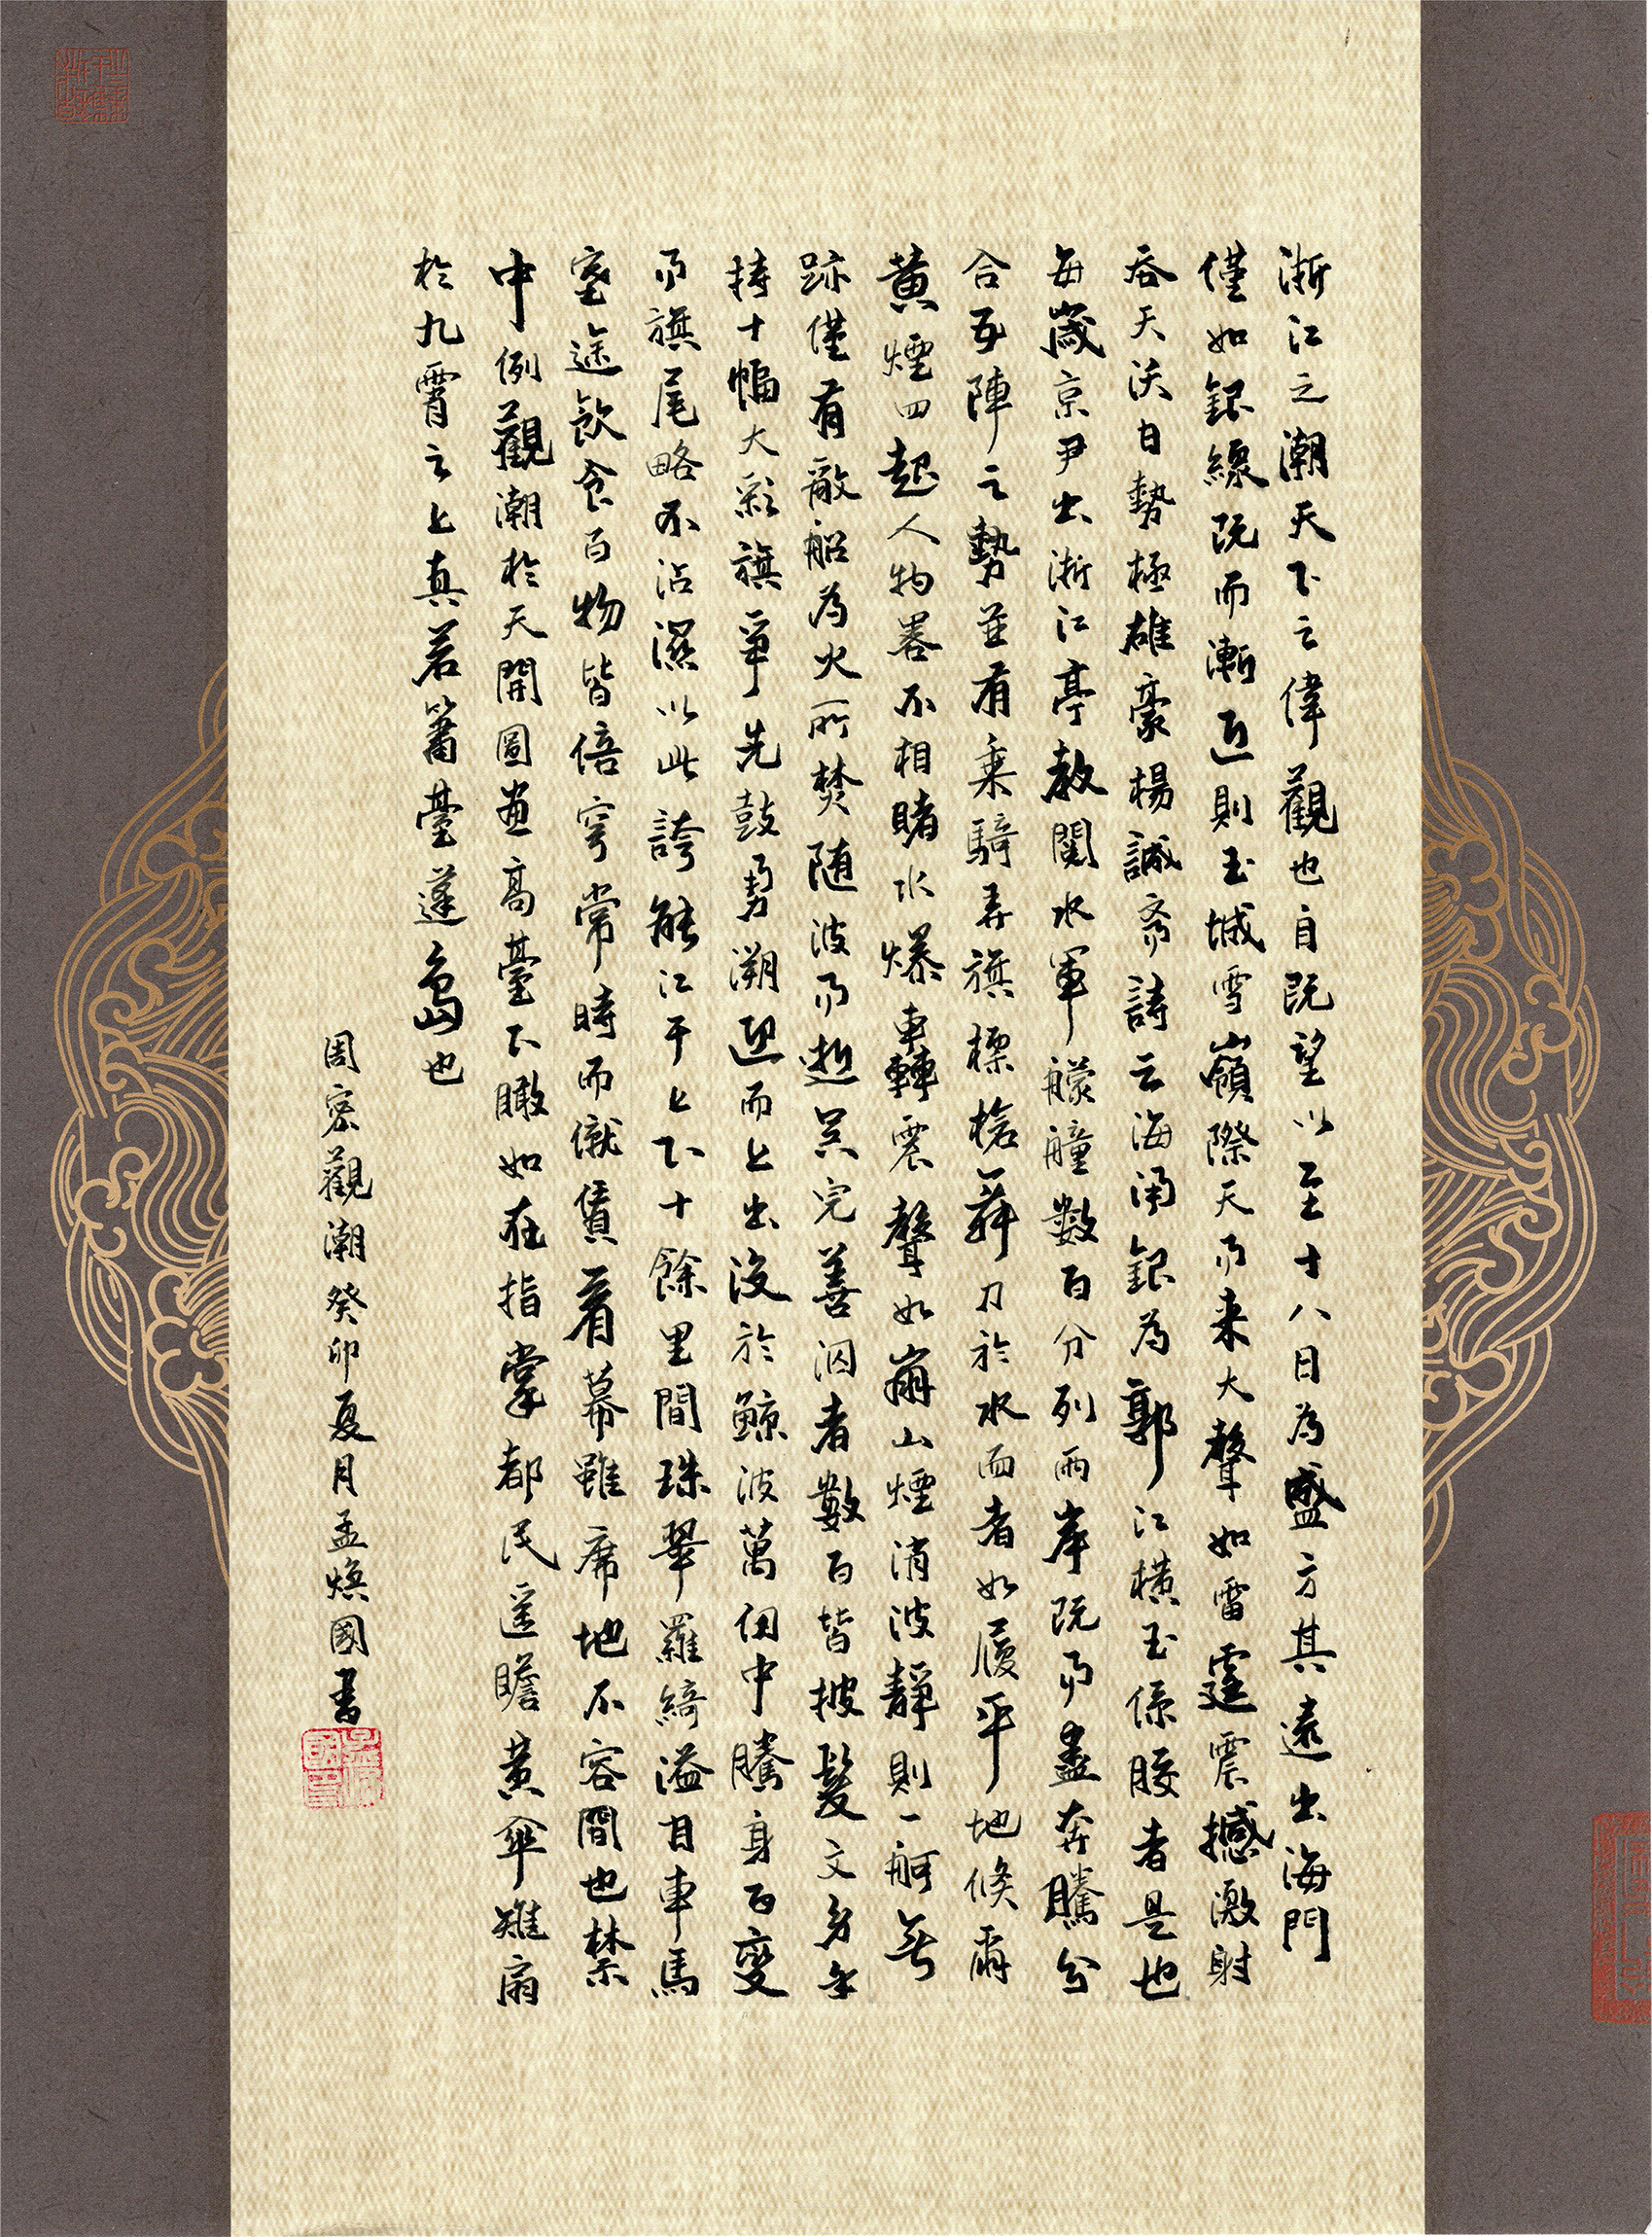 浙江之潮天下之偉觀也自既望以至十八日為盛方其遠出海門
僅如銀線既而漸近則玉城雪嶺際天而来大聲如雷霆震撼激射
吞天沃日勢極雄豪楊誠齋詩云海涌銀為郭江橫玉係腰者是也
每歲京尹出浙江亭教閱水軍艨艟數百分列兩岸既而盡奔騰分
合五陣之勢並有乘騎弄旗標槍舞刀於水面者如履平地倏爾
黃煙四起人物畧不相睹水爆轟震聲如崩山煙消波靜則一舸無
跡僅有敵船為火所焚随波而逝吳兒善泅者數百皆披髮文身手
持十幅大彩旗爭先鼓勇溯迎而上出沒於鯨波萬仞中騰身百變
而旗尾略不沾濕以此誇能江干上下十餘里間珠翠羅綺溢目車馬
塞途飲食百物皆倍穹常時而僦賃看幕雖席地不容間也禁
中例觀潮於天開圖畫高臺下瞰如在指掌都民遥瞻黃傘雉扇
於九霄之上真若簫臺蓬島也
周密觀潮癸卯夏月孟煥國書